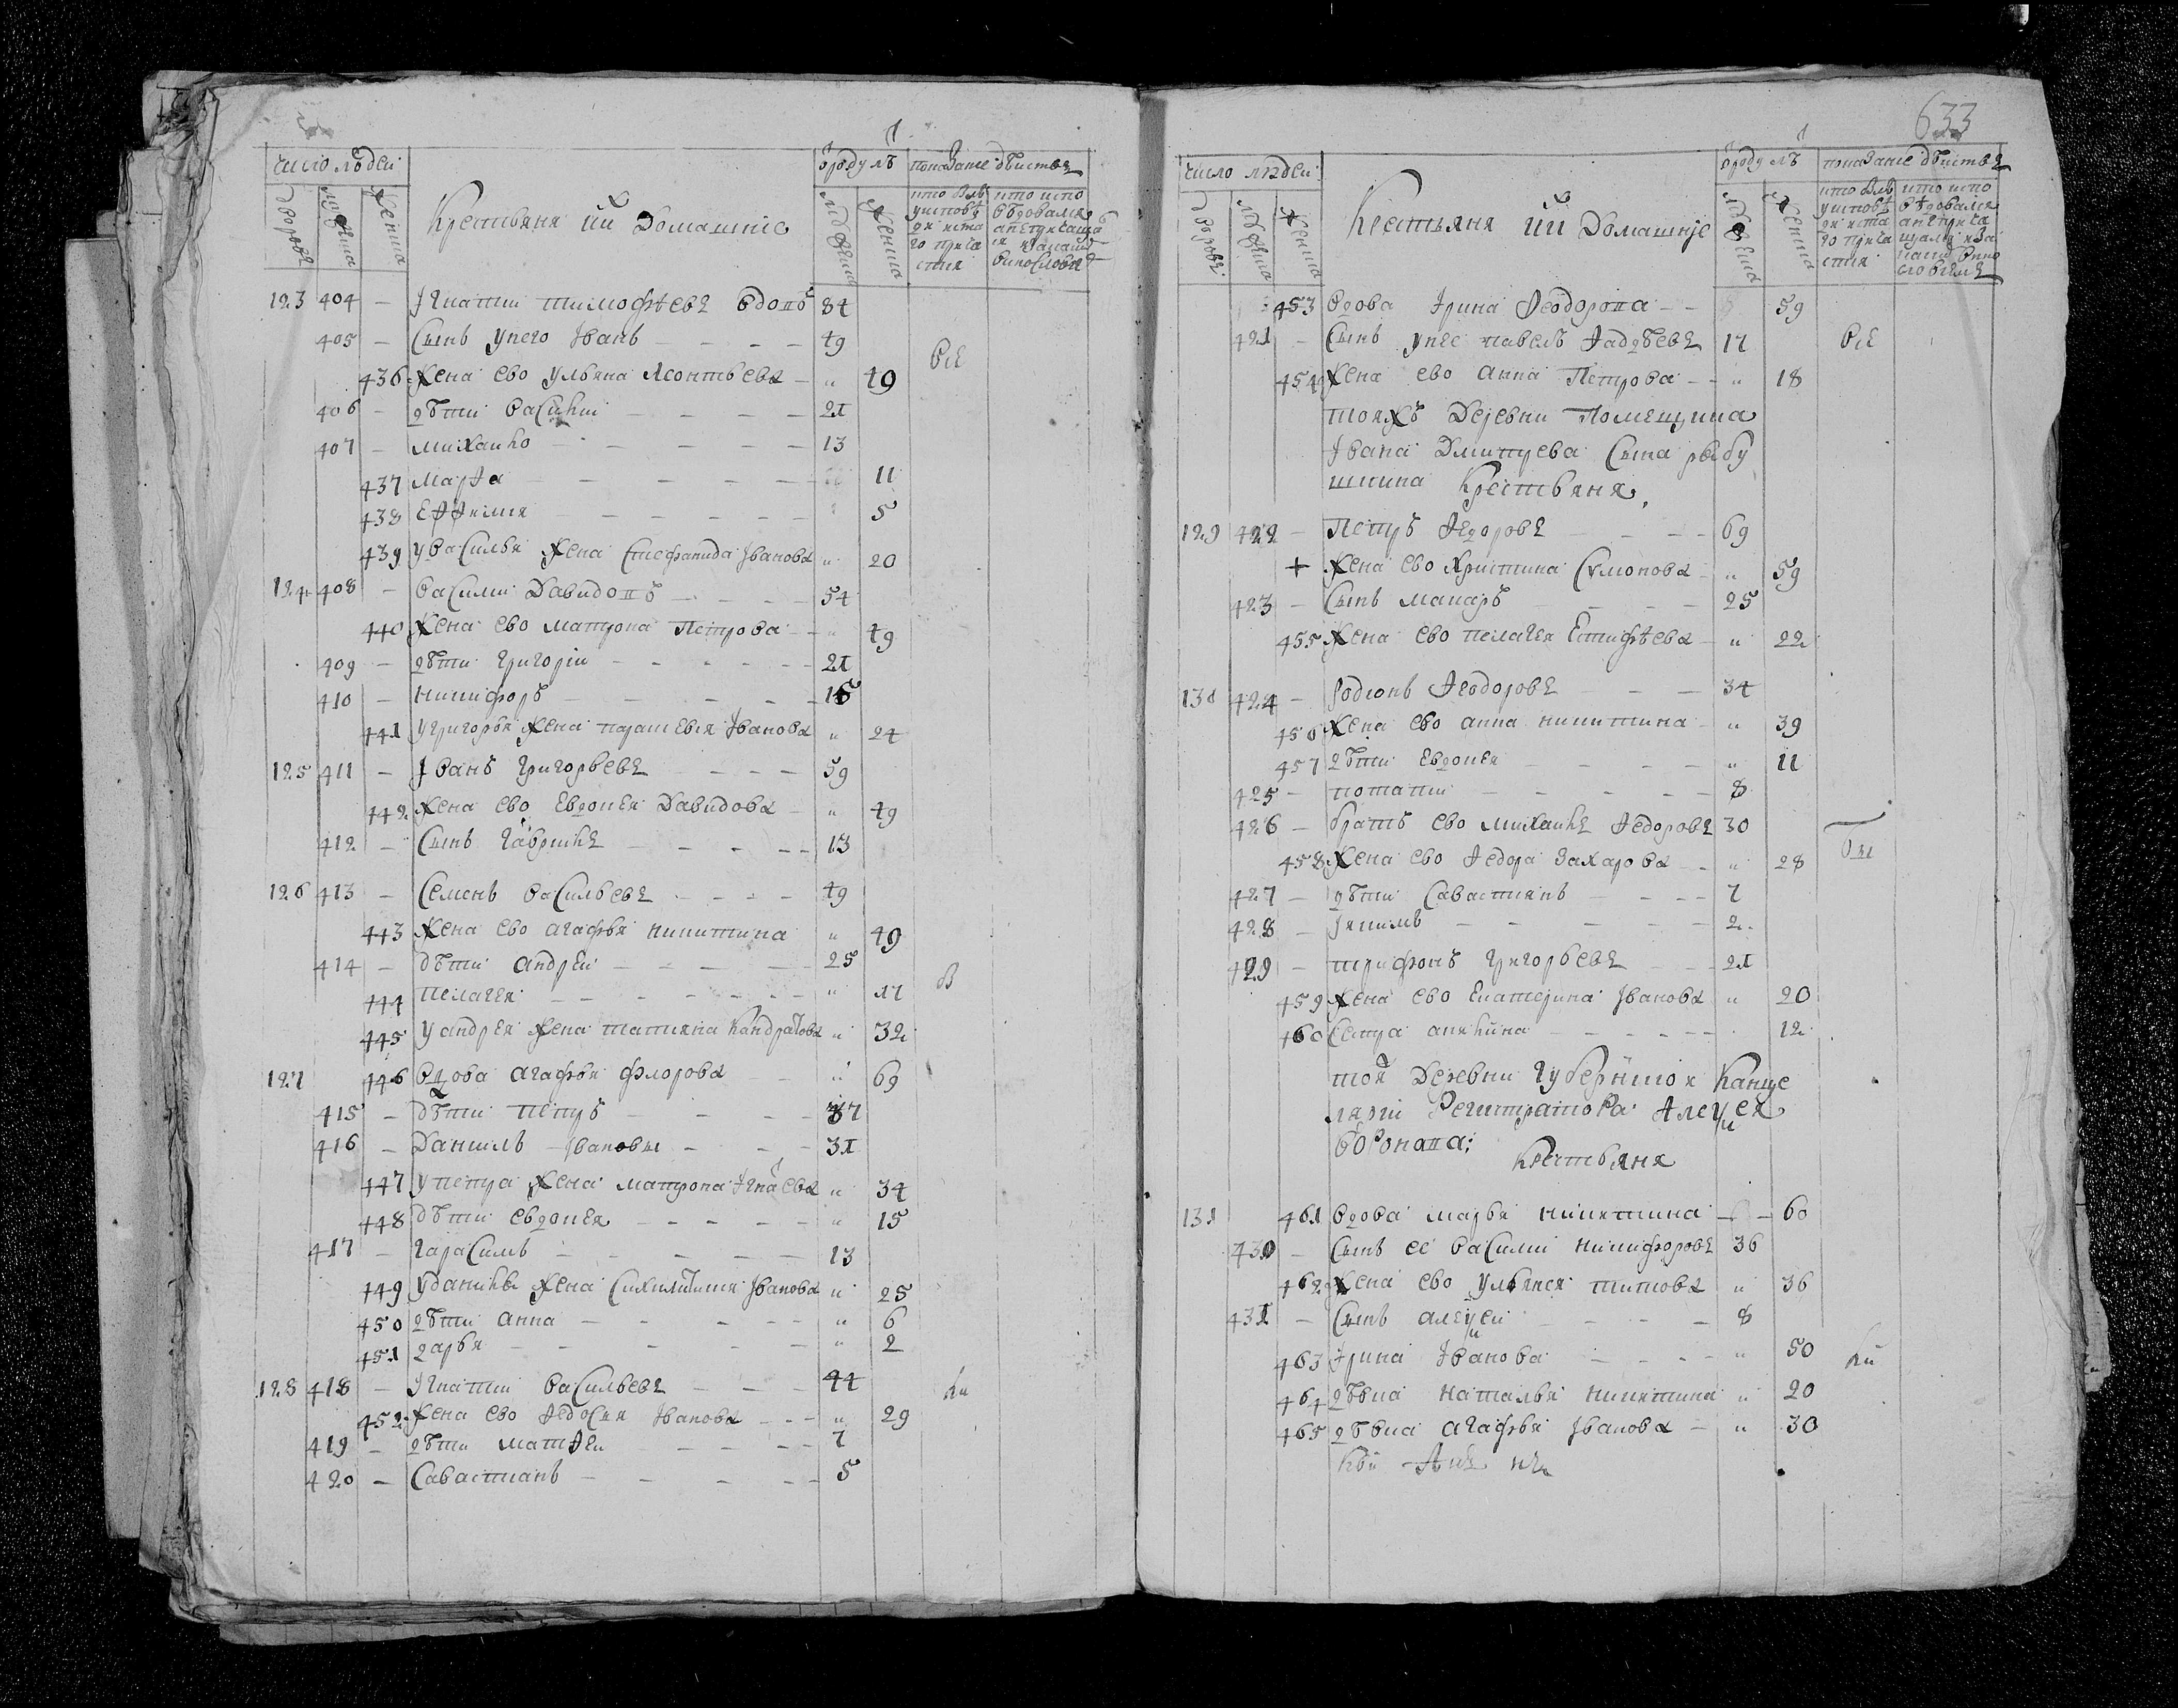 число людеи
от роду летъ
показание действъ
дворовъ
мужеска
женска
Крестьяня и их Домашние
мужеска
женска
123 404 – Игнатии тимофѣевъ вдовъ 84
405 – Сынъ у него Иванъ – – – 49
436 Жена ево ульяна Леонтьева – " 49
Все
406 – дѣти васили – – – 21
407 – михаило – – – 13
437 марѳа – – – 11
438 Еѳѳимия – – – 5
439 у василья жена Стефанида Иванова " 20
124 408 – васили Давидовъ – – – 54
440 Жена ево матрона Петрова – " 49
409 – дѣти григории – – – 21
410 – никифоръ – – – 15
441 у григорья жена парасковья Иванова " 24
125 411 – Иванъ григорьевъ – – – 59
442 Жена ево Евдокея Давидова – " 49
412 – Сынъ гаврила – – – 13
126 413 – Семенъ васильевъ – – – 49
443 Жена ево агафья никитина " 49
414 – дѣти андреи – – – 25
444 пелагея – – – " 17
445 у андрея жена татияна кандратова " 32
127 446 вдова агафья флорова – " 69
415 – дѣти петръ – – – 37
416 – Данилъ Ивановы – – 31
447 у петра жена матрона Игнатева " 34
448 дѣти евдокея – – – " 15
417 – гарасимъ – – – 13
449 у данилы жена Иванова " 25
450 дѣти анна – – – " 6
451 дарья – – – " 2
128 418 – Игнатии васильевъ – – – 44
452 Жена ево ѳедосия Иванова – – " 29
419 – дѣти матѳеи – – – 7
420 – Савастианъ – – – 5
633
число людеи
от роду летъ
показание действъ
дворовъ
мужеска
женска
Крестьяня и их Домашние
мужеска
женска
453 вдова Ирина Ѳеодорова – – 59
421 – Сынъ у нее павелъ Ѳадѣевъ 17
Все
454 Жена ево анна Петрова – – " 18
тояжъ Деревни Помещика
Ивана Дмитрева Сына рябу
шкина Крестьяня
129 422 – Петръ Ѳедоровъ – – – 69
+ Жена ево Христина Симонова – " 59
423 – Сынъ макаръ – – – 25
455 Жена ево пелагея Естифѣева – " 22
130 424 – Родионъ Ѳеодоровъ – – – 34
456 Жена ево анна никитина – " 39
457 дѣти Евдокея – – – " 11
425 – потапи – – – 8
426 – братъ ево михаила Ѳедоровъ 30
458 Жена ево Ѳедора Захарова – " 28
427 – дѣти Савастиянъ – – – 7
428 – Якимъ – – – 2
429 – трифонъ григорьевъ – – 21
459 Жена ево Екатерина Иванова " 20
460 Сестра – – – 12
тоя Деревни губернской Канце
лярии Регистратора Алексея
Воронова:
Крестьяня
131 461 вдова марья никитина – – 60
430 – Сынъ ее васили никифоровъ 36
462 Жена ево ульянея титова " 36
431 – Сынъ алексеи – – – 8
463 Ирина Иванова – – – " 50
464 дѣвка наталья никитина " 20
465 дѣвка агафья Иванова – " 30